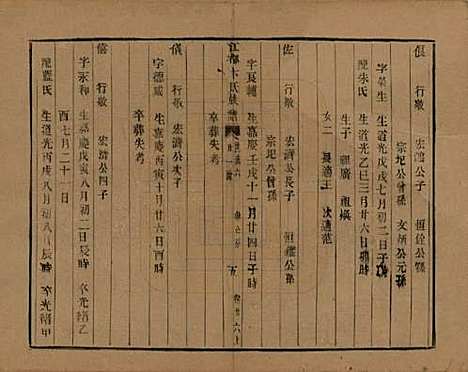 倀 行敬 宏濟公子 恆銓公孫
宗圯公曾孫 文炳公元孫
字英生 生道光戊戌七月初二日子時
配朱氏 生道光乙巳三月廿六日子時
生子 祖廣 祖振
女二 長適王 次適范
佐 行敬 宏濟公長子 恆鑑公孫
宗圯公曾孫
字良輔 生嘉慶壬戌十一月廿四日子時
卒葬失考
江都卞氏族譜
五
儀 行敬 宏濟公次子
字德威 生嘉慶丙寅十月廿六日酉時
卒葬失考
行敬 宏濟公四子
字永和 生嘉慶戊寅八月初二日辰時
卒光緒乙酉七月二十一日
配藍氏 生道光丙戌八月初八日辰時 卒光緒甲